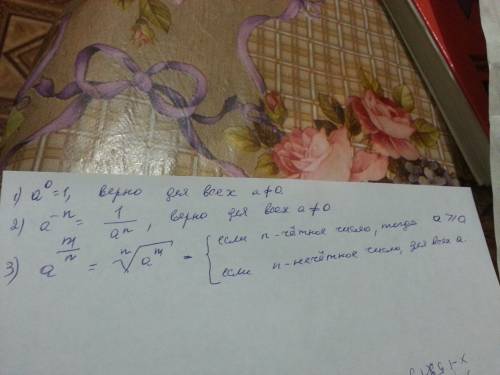 1) a⁰=1, верно для всех a≠0.
2) a⁻ⁿ = 1/aⁿ, верно для всех a≠0
3) a^(m/n) = ⁿ√(a^m) - { если n-чётное число, тогда a≥0
если n-нечётное число, для всех a.